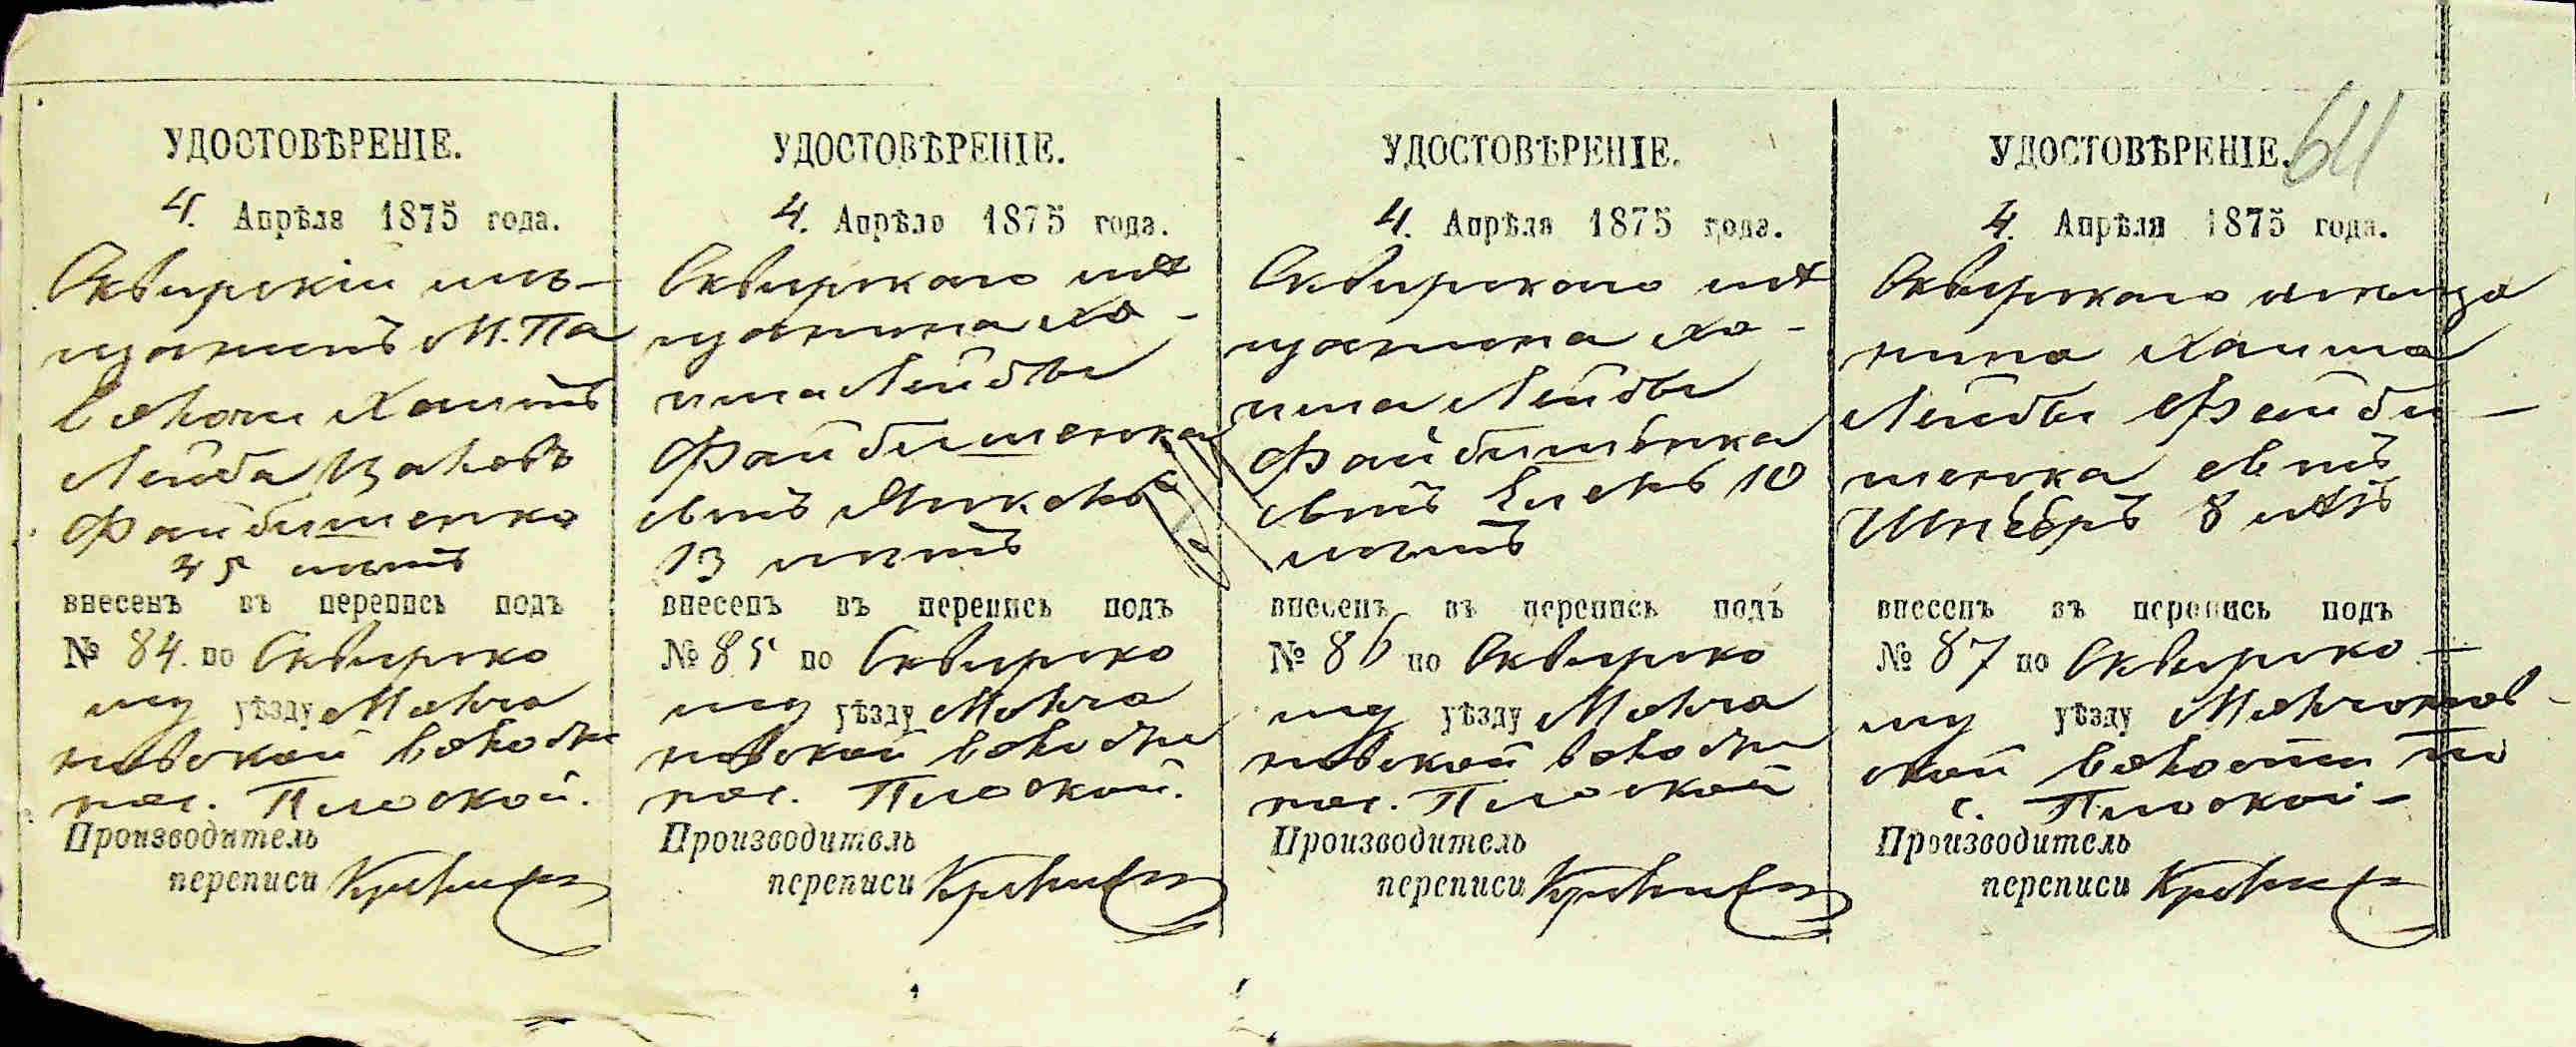 УДОСТОВѢРЕНІЕ.
4. Апрѣля 1875 года.
Сквирскій мѣ-
щанинъ М. Па
волочи Хаимъ
Лейба Ицковъ
Файбишенко
35 лѣтъ
внесенъ въ перепись подъ
№ 84. по Сквирско
му уѣзду Молча
новской волости
пос. Плоской.
Производитель
переписи
УДОСТОВѢРЕНІЕ.
4. Апрѣля 1875 года.
Сквирскаго мѣ
щанина Ха-
има Лейбы
Файбишенка
сынъ
13 лѣтъ
внесенъ въ перепись подъ
№ 85 по Сквирско
му уѣзду Молча
новской волости
пос. Плоской.
Производитель
переписи
УДОСТОВѢРЕНІЕ.
4. Апрѣля 1875 года.
Сквирскаго мѣ
щанина Ха-
има Лейбы
Файбишенка
сынъ 10
лѣтъ
внесенъ въ перепись подъ
№ 86 по Сквирско
му уѣзду Молча
новской волости
пос. Плоской
Производитель
переписи
УДОСТОВѢРЕНІЕ.
641
4. Апрѣля 1875 года.
Сквирскаго мѣща
нина Хаима
Лейбы Файби-
шенка сынъ
8 лѣтъ
внесенъ въ перепись подъ
№ 87 по Сквирско-
му уѣзду Молчанов-
ской волости по
с. Плоской-
Производитель
переписи